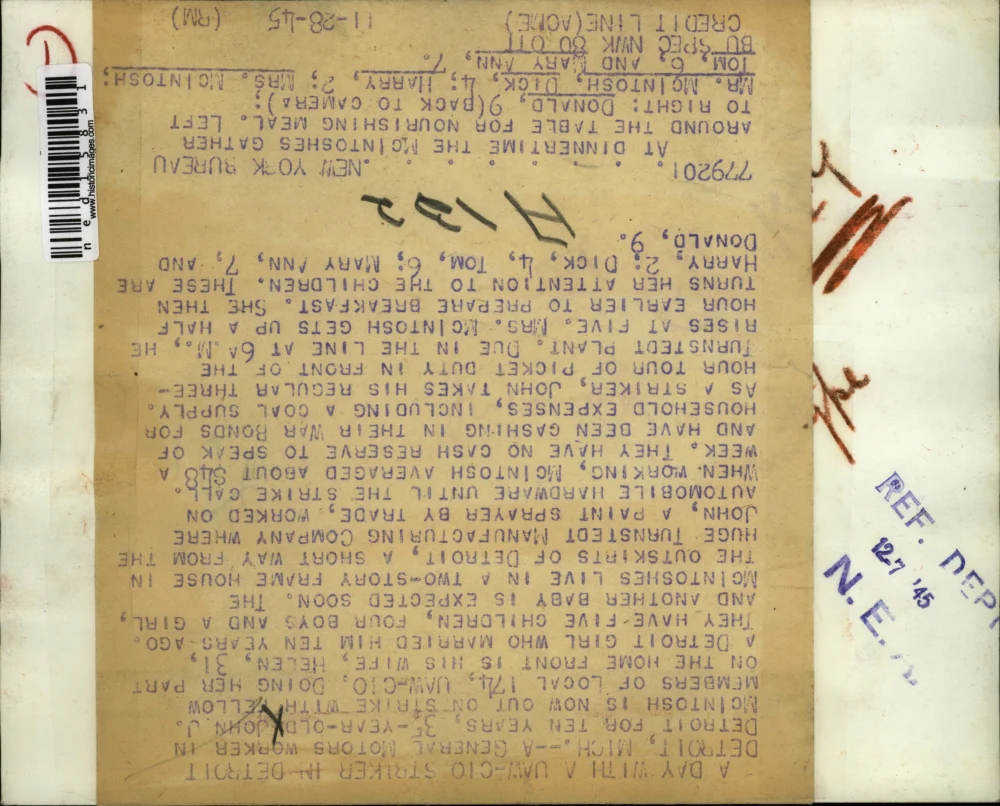 A DAY WITH A UAW-CIO STRIKER IN DETROIT
DETROIT, MICH.--A GENERAL MOTORS WORKER IN
DETROIT FOR TEN YEARS, 35-YEAR-OLD JOHN J.
MCINTOSH IS NOW OUT ON STRIKE WITH FELLOW
MEMBERS OF LOCAL 174, UAW-CIO. DOING HER PART
ON THE HOME FRONT IS HIS WIFE, HELEN, 31,
A DETROIT GIRL WHO MARRIED HIM TEN YEARS AGO.
THEY HAVE FIVE CHILDREN, FOUR BOYS AND A GIRL,
AND ANOTHER BABY IS EXPECTED SOON. THE
MCINTOSHES LIVE IN A TWO-STORY FRAME HOUSE IN
THE OUTSKIRTS OF DETROIT, A SHORT WAY FROM THE
HUGE TURNSTEDT MANUFACTURING COMPANY WHERE
JOHN, A PAINT SPRAYER BY TRADE, WORKED ON
AUTOMOBILE HARDWARE UNTIL THE STRIKE CALL.
WHEN WORKING, MCINTOSH AVERAGED ABOUT $48 A
WEEK. THEY HAVE NO CASH RESERVE TO SPEAK OF
AND HAVE BEEN CASHING IN THEIR WAR BONDS FOR
HOUSEHOLD EXPENSES, INCLUDING A COAL SUPPLY.
AS A STRIKER, JOHN TAKES HIS REGULAR THREE-
HOUR TOUR OF PICKET DUTY IN FRONT OF THE
TURNSTEDT PLANT. DUE IN THE LINE AT 6A.M., HE
RISES AT FIVE. MRS. MCINTOSH GETS UP A HALF
HOUR EARLIER TO PREPARE BREAKFAST. SHE THEN
TURNS HER ATTENTION TO THE CHILDREN. THESE ARE
HARRY, 2; DICK, 4, TOM, 6; MARY ANN, 7, AND
DONALD, 9.
H122
779201. . . . . . . .NEW YORK BUREAU
AT DINNERTIME THE MCINTOSHES GATHER
AROUND THE TABLE FOR NOURISHING MEAL. LEFT
TO RIGHT: DONALD, 9(BACK TO CAMERA);
MR. MCINTOSH, DICK, 4; HARRY, 2; MRS. MCINTOSH;
TOM, 6, AND MARY ANN, 7.
BU SPEC NWK BO OTT
CREDIT LINE(ACME) 11-28-45 (RM)
www.historicimages.com
ned15831
REF. DEPT
12-7 '45
N. E. A.